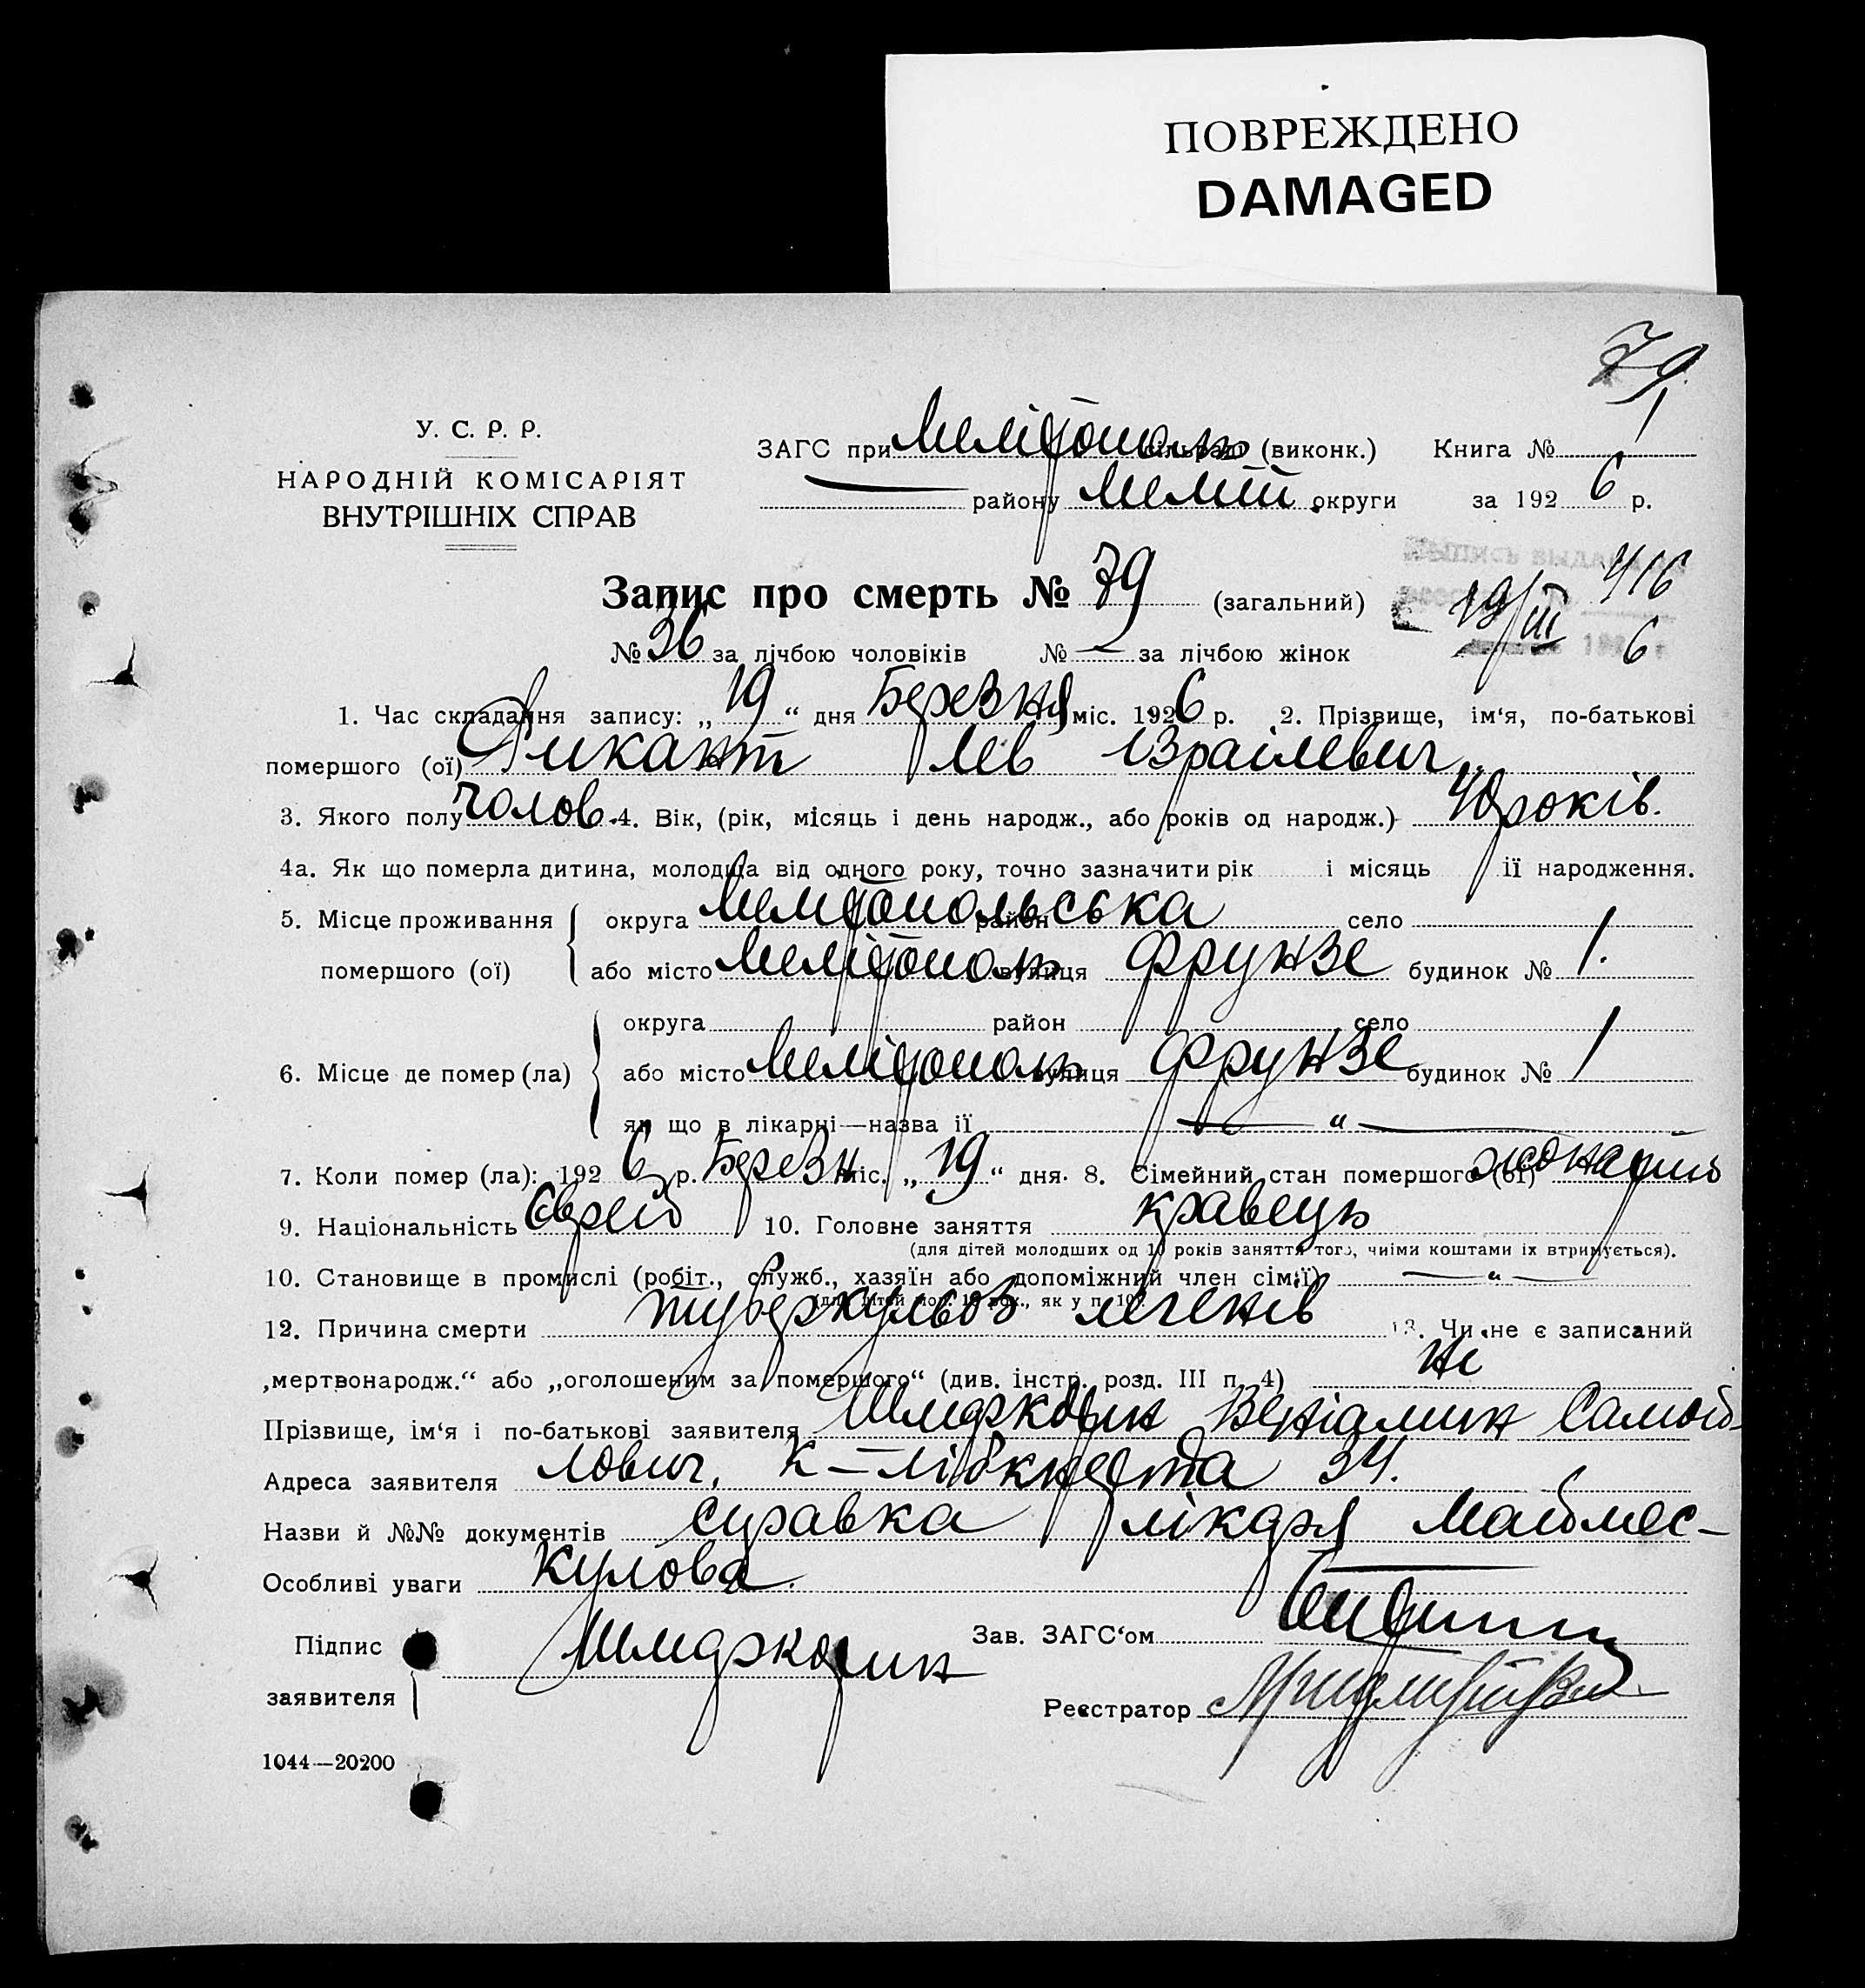 ПОВРЕЖДЕНО
DAMAGED
79
У. С. Р. Р.
НАРОДНІЙ КОМІСАРІЯТ
ВНУТРІШНІХ СПРАВ
ЗАГС при Мелітополь сільраді (виконк.) Книга № 1
— району Меліт округи за 192 6 р.
Запис про смерть № 79 (загальний)
416
19/III 6
№ 36 за лічбою чоловіків № — за лічбою жінок
1. Час складання запису: „ 19 “ дня Березня міс. 192 6 р. 2. Прізвище, ім‘я, по-батькові
помершого (ої) Дикант Лев Ізраілевич
3. Якого полу чолов. 4. Вік, (рік, місяць і день народж., або років од народж.) 40 років.
4а. Як що померла дитина, молодща від одного року, точно зазначити рік і місяць ії народження.
5. Місце проживання округа Мелітопольська район село
помершого (ої) або місто Мелітополь вулиця Фрунзе будинок № 1.
округа район село
6. Місце де помер (ла) або місто Мелітополь вулиця Фрунзе будинок № 1
як що в лікарні—назва ії — „ —
7. Коли помер (ла): 192 6 р. Березн міс. „ 19 “ дня. 8. Сімейний стан помершого (ої) жонатий
9. Національність Єврей 10. Головне заняття кравець
(для дітей молодших од 10 років заняття того, чиіми коштами іх втримується).
10. Становище в промислі (робіт., служб., хазяїн або допоміжний член сім‘ї) — „ —
(для дітей мол. 10 рок., як у п. 10).
12. Причина смерти туберкульоз легенів 13. Чи не є записаний
„мертвонародж.“ або „оголошеним за помершого“ (див. інстр. розд. III п. 4) ні
Прізвище, ім‘я і по-батькові заявителя Веніамин Самой-
Адреса заявителя лович, К-Лібкнехта 34.
Назви й №№ документів справка лікаря Маймес-
Особливі уваги кулова.
Підпис
заявителя
Зав. ЗАГС‘ом
Реєстратор
1044—20200